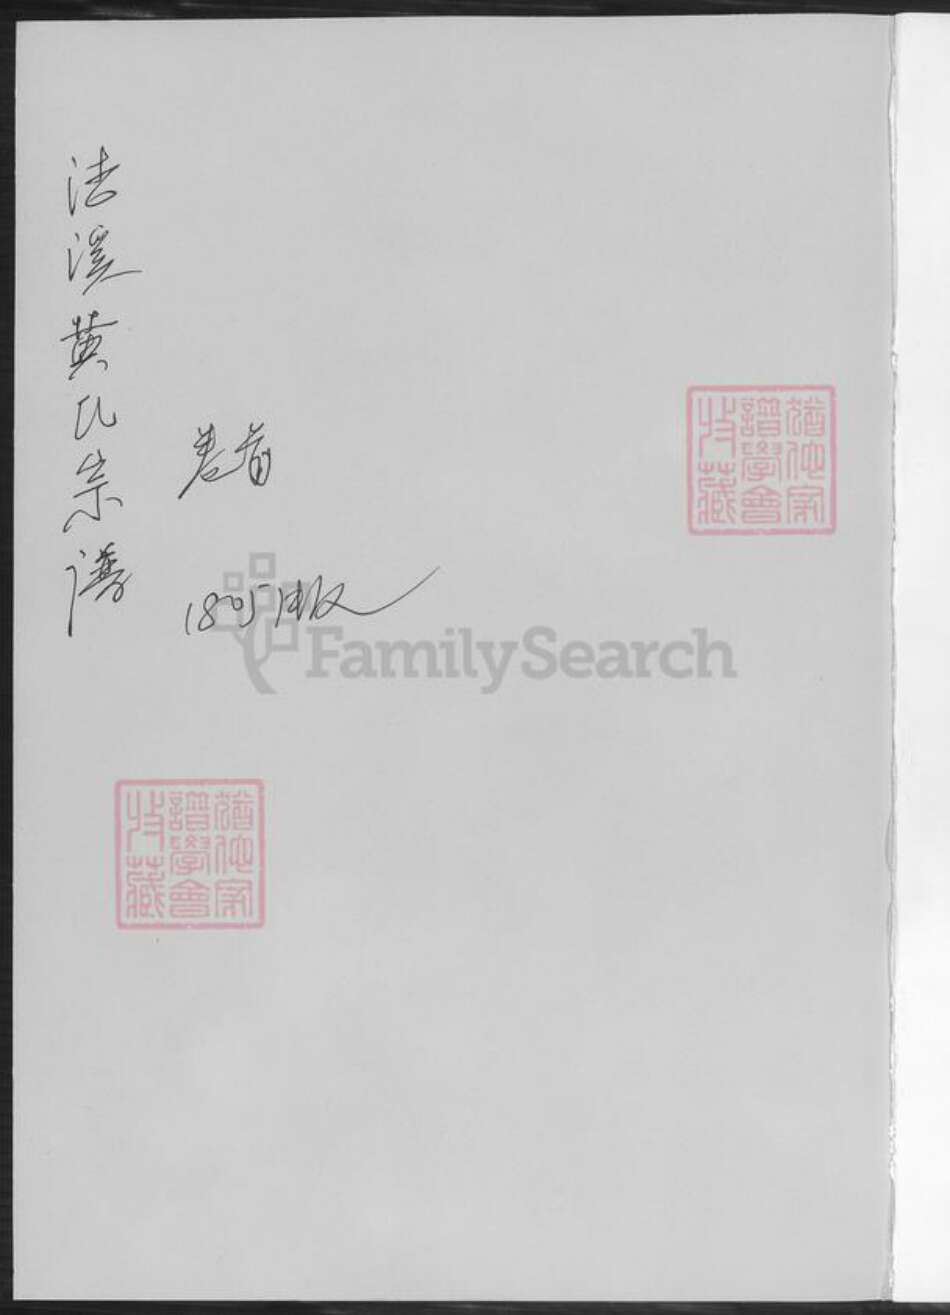 溪黄氏宗谱
卷首
猶他家
譜學會
收藏
FamilySearch
猶他家
譜學會
收藏